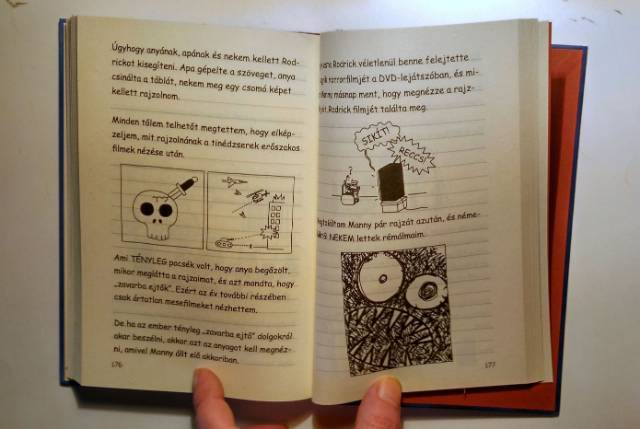 Úgyhogy anyának, apának és nekem kellett Rod-
rickot kisegíteni. Apa gépelte a szöveget, anya
csinálta a táblát, nekem meg egy csomó képet
kellett rajzolnom.
Minden tőlem telhetőt megtettem, hogy elkép-
zeljem, mit rajzolnának a tinédzserek erőszakos
filmek nézése után.
Ami TÉNYLEG pocsék volt, hogy anya begőzölt,
mikor meglátta a rajzaimat, és azt mondta, hogy
„zavarba ejtők”. Ezért az év további részében
csak ártatlan mesefilmeket nézhettem.
De ha az ember tényleg „zavarba ejtő” dolgokról
akar beszélni, akkor azt az anyagot kell megnéz-
ni, amivel Manny állt elő akkoriban.
176
Rodrick véletlenül benne felejtette
horrorfilmjét a DVD-lejátszóban, és mi-
másnap ment, hogy megnézze a rajz-
Rodrick filmjét találta meg.
SIKÍT!
RECCS!
?
Manny pár rajzát azután, és néme-
NEKEM lettek rémálmaim.
177